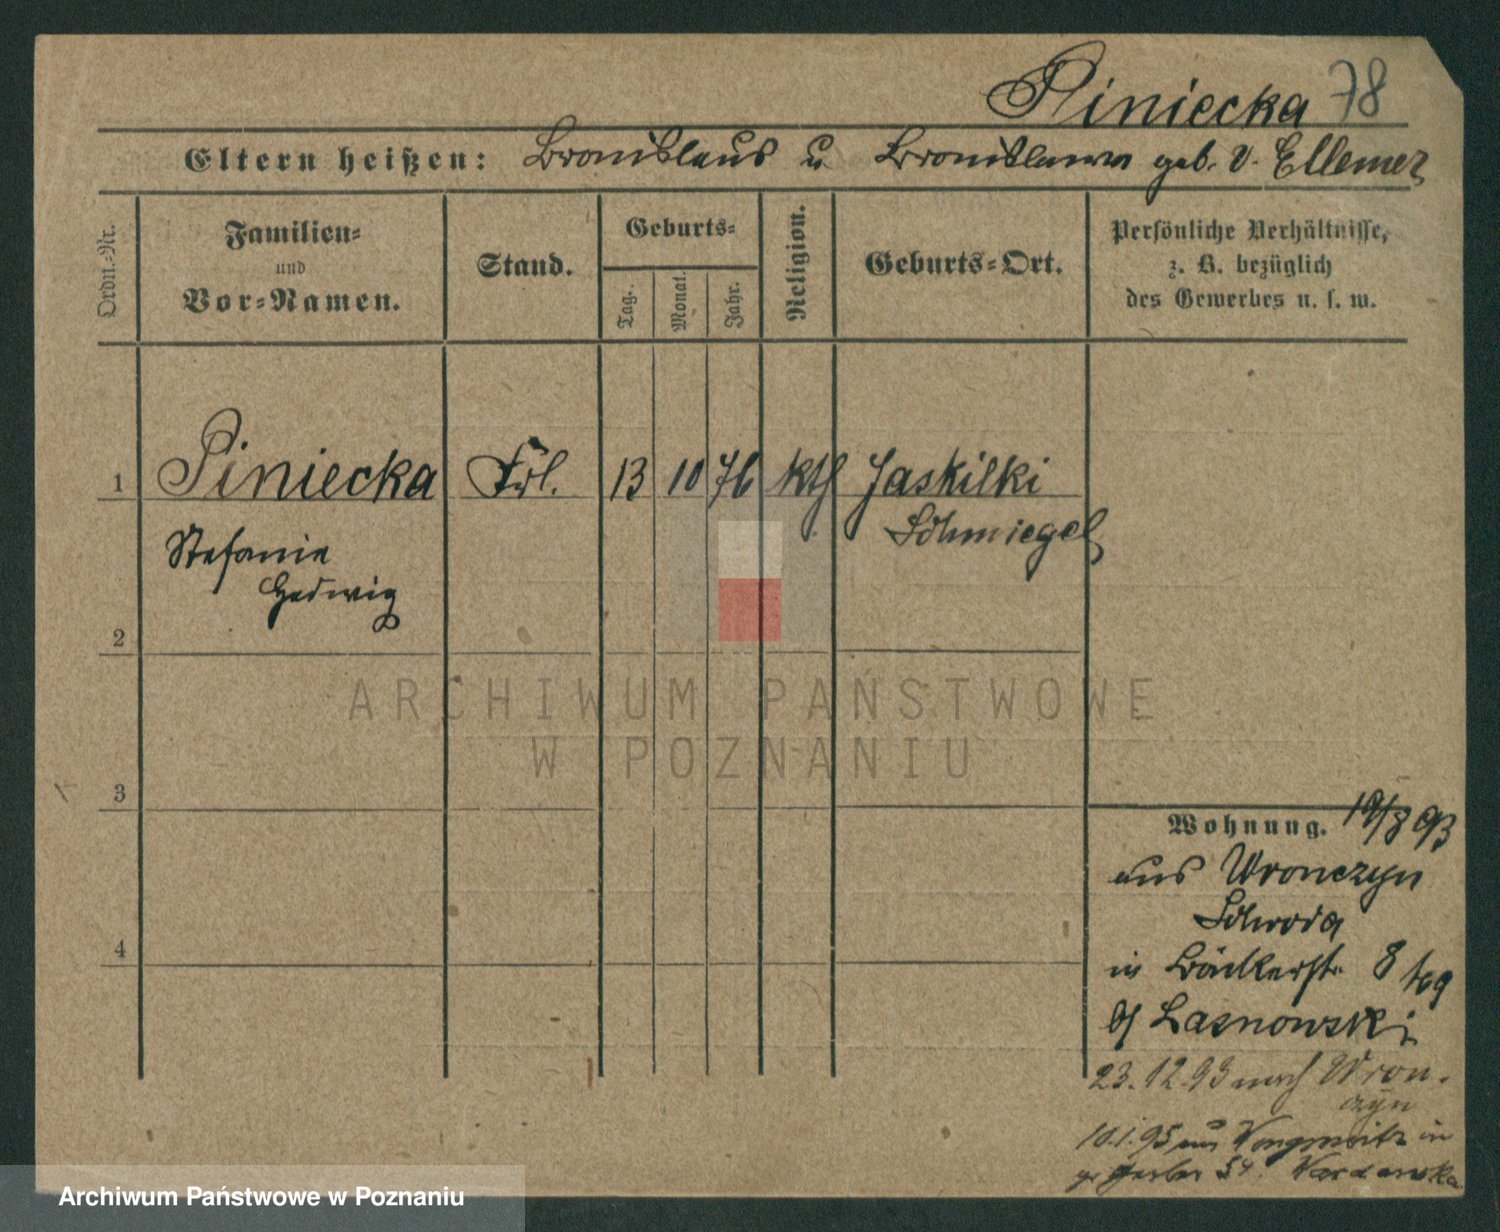 Piniecka 78
Eltern heißen: Bronislaus u Bronislawa geb. v. Ellemer
Ordn.-Nr.
Familien-
und
Vor-Namen.
Stand.
Geburts-
Tag.
Monat.
Jahr.
Religion.
Geburts-Ort.
Persönliche Verhältnisse,
z. B. bezüglich
des Gewerbes u. s. w.
1 Piniecka Frl. 13 10 76 kth Jaskilki
Schmiegel
Stefanie
Hedwig
2
3
4
ARCHIWUM PAŃSTWOWE
W POZNANIU
Wohnung. 19/8 93
aus Wronczyn
Schroda
in Bäckerstr. 8
b/ Lasnowski
23.12.93 nach Wron-
czyn
10.1.95 aus in
Gerber 54.
Archiwum Państwowe w Poznaniu